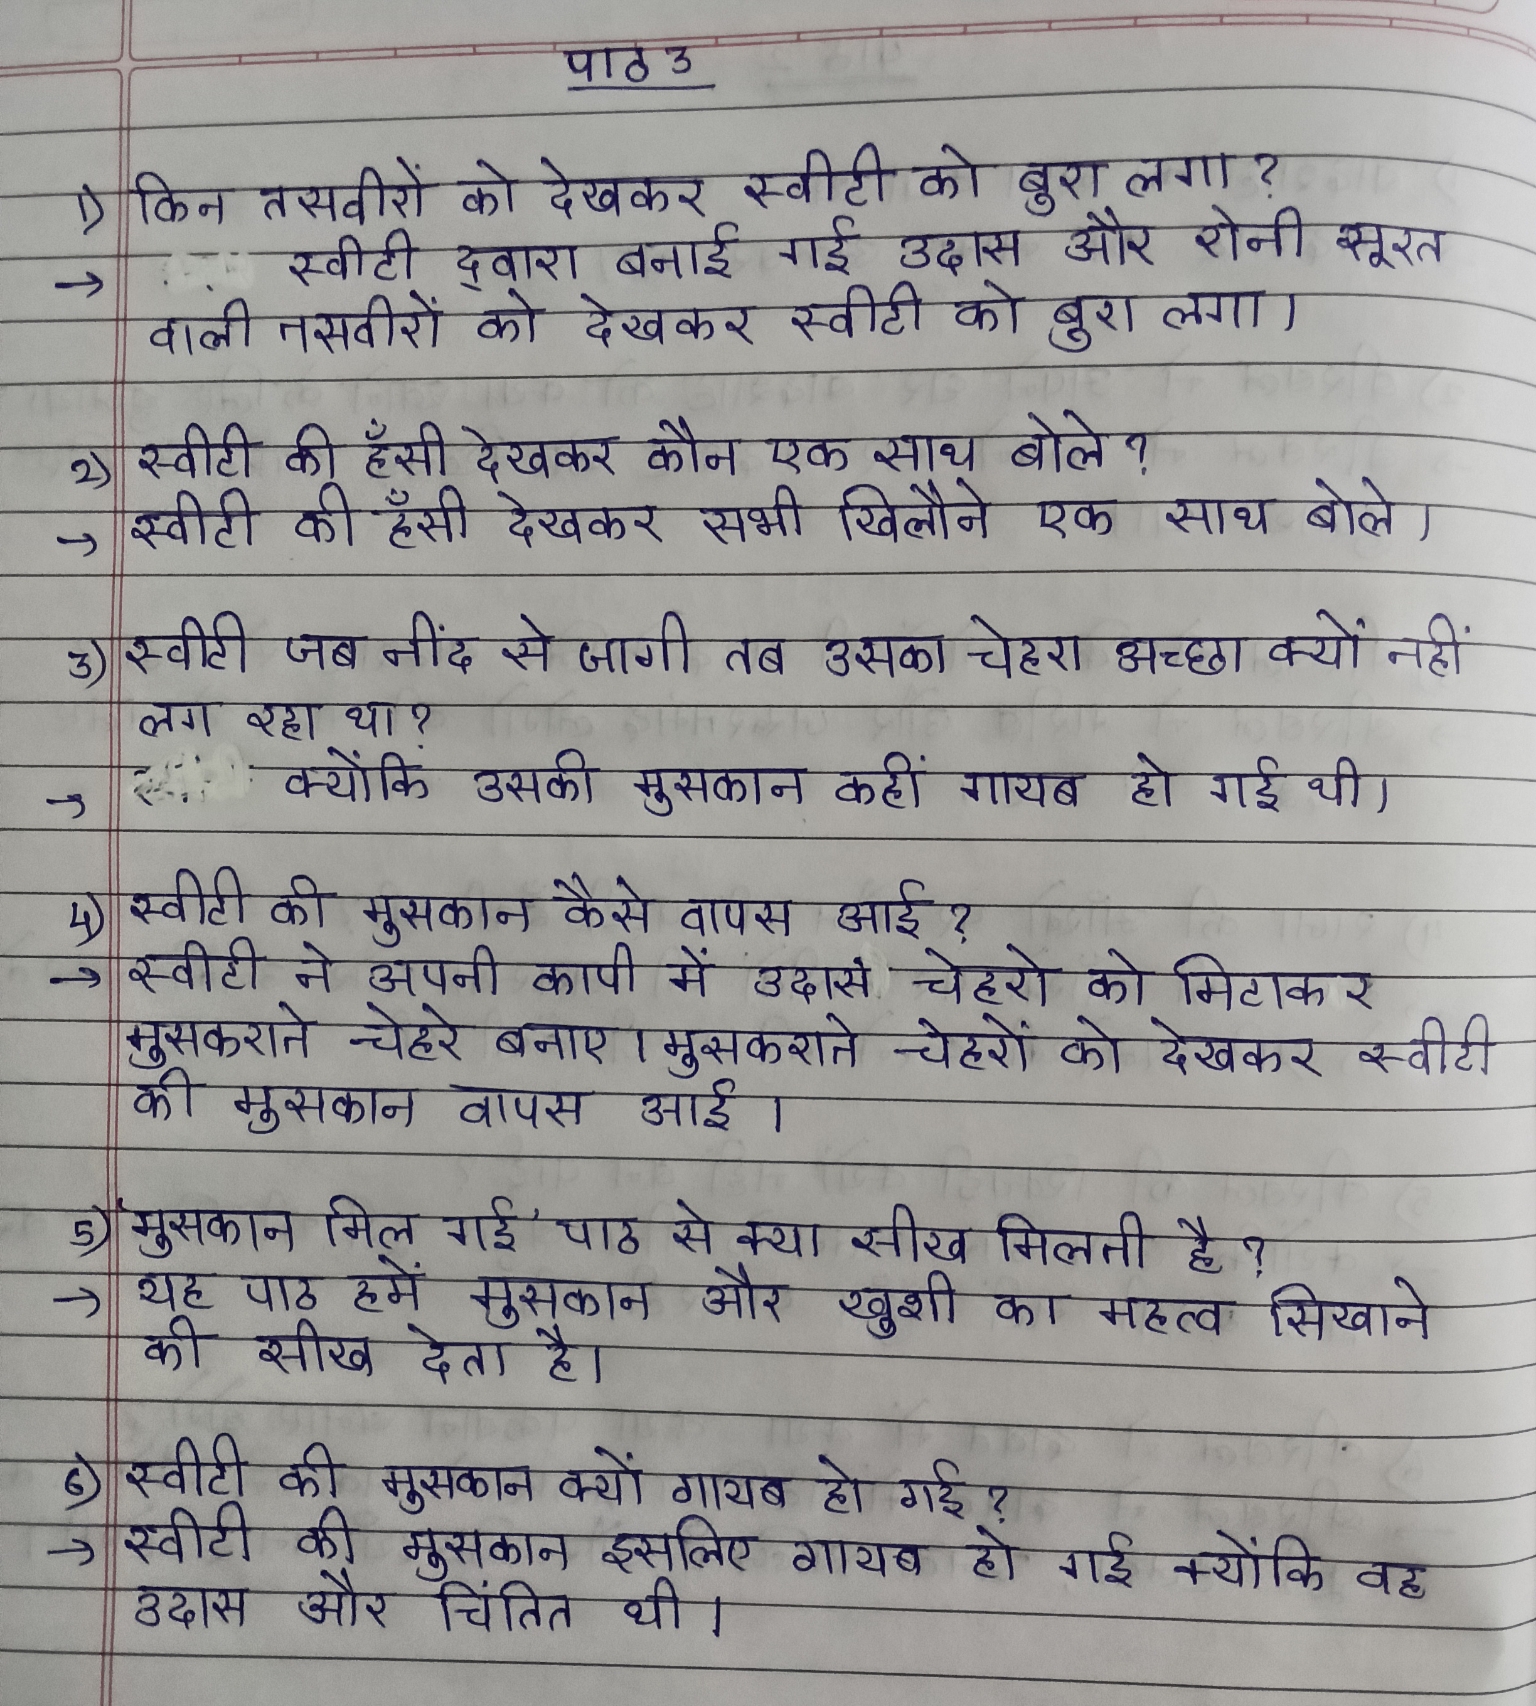 पाठ 3
1) किन तसवीरों को देखकर स्वीटी को बुरा लगा?
→ स्वीटी द्वारा बनाई गई उदास और रोनी सूरत
वाली तसवीरों को देखकर स्वीटी को बुरा लगा।
2) स्वीटी की हँसी देखकर कौन एक साथ बोले?
→ स्वीटी की हँसी देखकर सभी खिलौने एक साथ बोले।
3) स्वीटी जब नींद से जागी तब उसका चेहरा अच्छा क्यों नहीं
लग रहा था?
→ क्योंकि उसकी मुसकान कहीं गायब हो गई थी।
4) स्वीटी की मुसकान कैसे वापस आई?
→ स्वीटी ने अपनी कापी में उदास चेहरो को मिटाकर
मुसकराते चेहरे बनाए। मुसकराते चेहरों को देखकर स्वीटी
की मुसकान वापस आई।
5) 'मुसकान मिल गई' पाठ से क्या सीख मिलती है?
→ यह पाठ हमें मुसकान और खुशी का महत्व सिखाने
की सीख देता है।
6) स्वीटी की मुसकान क्यों गायब हो गई?
→ स्वीटी की मुसकान इसलिए गायब हो गई क्योंकि वह
उदास और चिंतित थी।